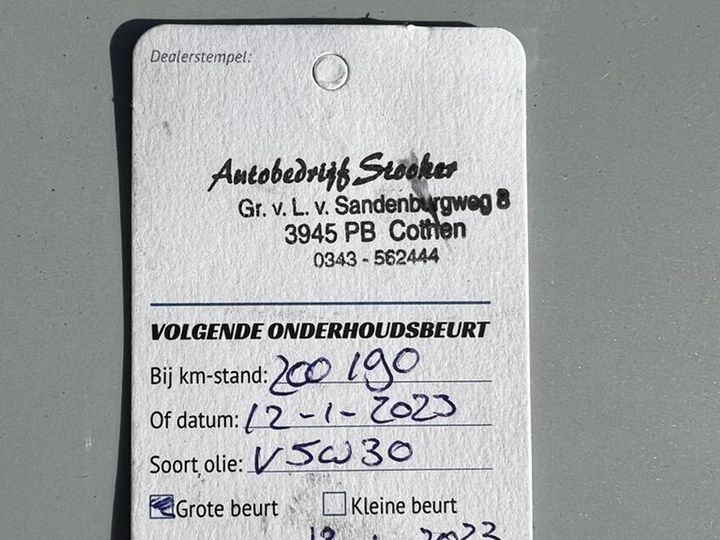 Dealerstempel:
Autobedrijf Stooker
Gr. v. L. v. Sandenburgweg 8
3945 PB Cothen
0343 - 562444
VOLGENDE ONDERHOUDSBEURT
Bij km-stand: 200 190
Of datum: 12-1-2023
Soort olie: V5W30
Grote beurt Kleine beurt